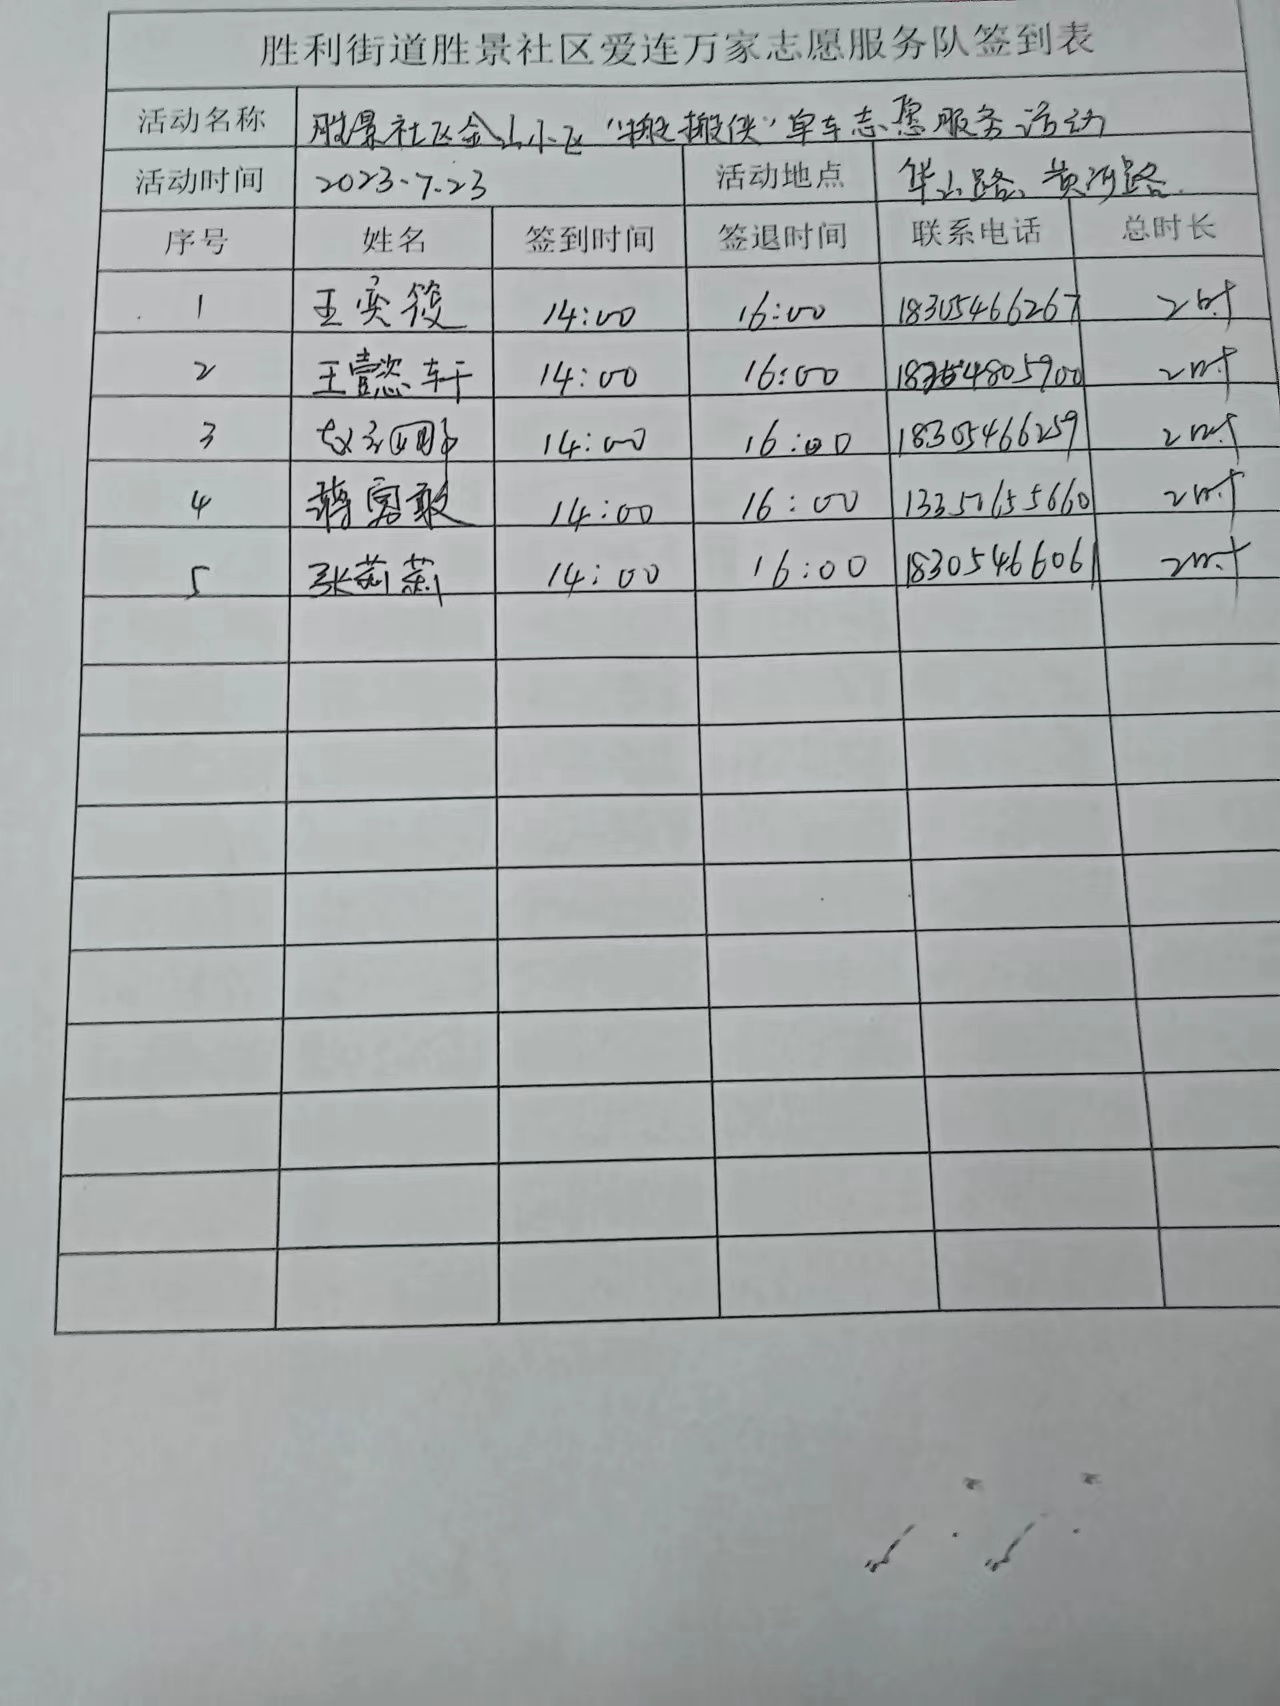 胜利街道胜景社区爱连万家志愿服务队签到表
活动名称 胜景社区金山小区“搬搬侠”单车志愿服务活动
活动时间 2023.7.23 活动地点 华山路、黄河路
序号 姓名 签到时间 签退时间 联系电话 总时长
1 王奕筱 14:00 16:00 18305466267 2时
2 王懿轩 14:00 16:00 2时
3 14:00 16:00 18305466259 2时
4 蒋勇敢 14:00 16:00 2时
5 张莉莉 14:00 16:00 18305466061 2时